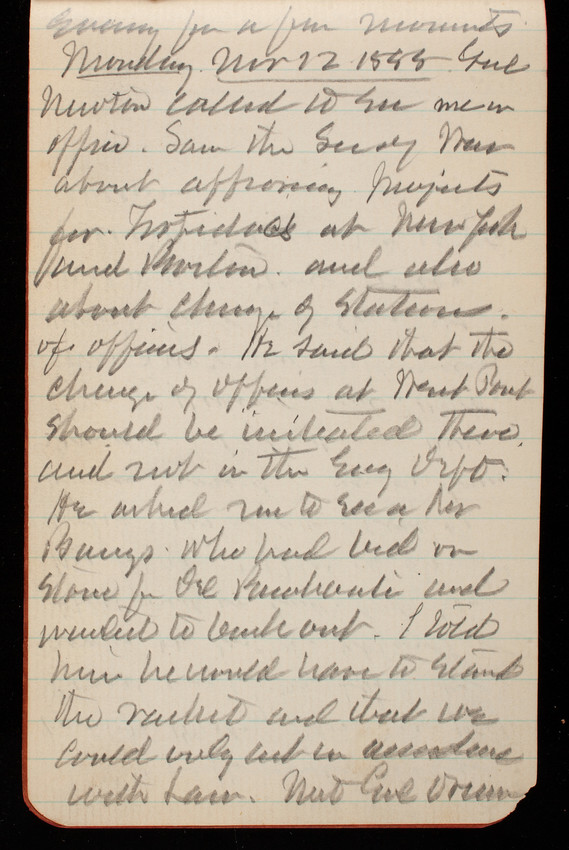 Evening for a few moments
Monday. Nov 12 1888. Genl
Newton called to see me in
office. Saw the Secy War
about approving projects
for Torpedoes at New York
and Boston. and also
about change of Stations.
of officers. He said that the
change of officers at West Point
should be initiated there.
and not in the Eng Dept.
He asked me to see a Mr
Bangs. who had bid on
stone for Del Breakwater and
wanted to back out. I told
him he would have to stand
the racket and that we
could only act in accordance
with Law. Met Genl Drum